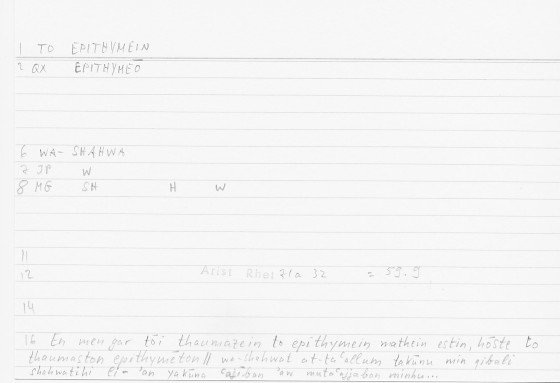 1 TO EPITHYMEIN
2 QX EPITHYMEŌ
6 WA- SHAHWA
7 JP W
8 MG SH H W
11
12 Arist Rhet 71a 32 = 59.9
14
16 En men gar tōi thaumazein to epithymein mathein estin, hōste to
thaumaston epithymēton // wa-shahwat at-taʿallum takūnu min qibali
shahwatihi li- ʾan yakūna ʿajīban ʾaw mutaʿajjaban minhu...